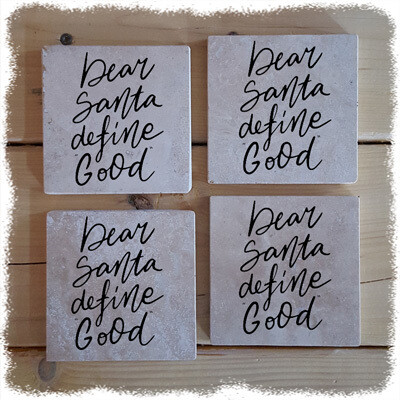 Dear
Santa
define
Good
Dear
Santa
define
Good
Dear
Santa
define
Good
Dear
Santa
define
Good